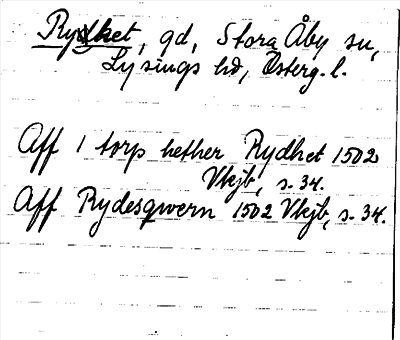 Rydket, gd, Stora Åby sn,
Lysings hd, Österg. l.
Aff 1 torp hether Rydhet 1502
Vkjb, s. 34.
Aff Rydesqwern 1502 Vkjb, s. 34.